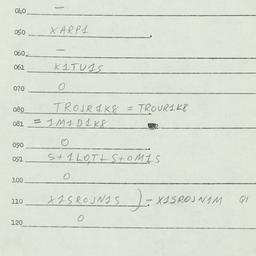 040 —
050 XARP1
060 —
061 K1TU1S
070 0
080 TROJR1K8 = TROUR1K8
081 = 1M1D1K8
090 0
091 S+1LO,T+S+OM1S
100 0
110 X1SROJN1S ) - X1SROJN1M
120 0